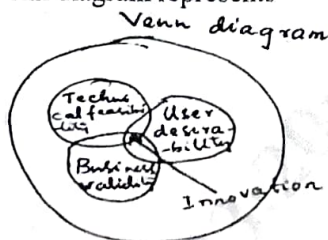 diagram represents
Venn diagram
Techni
cal feasibi
lity
User
desira-
bility
Business
validity
Innovation